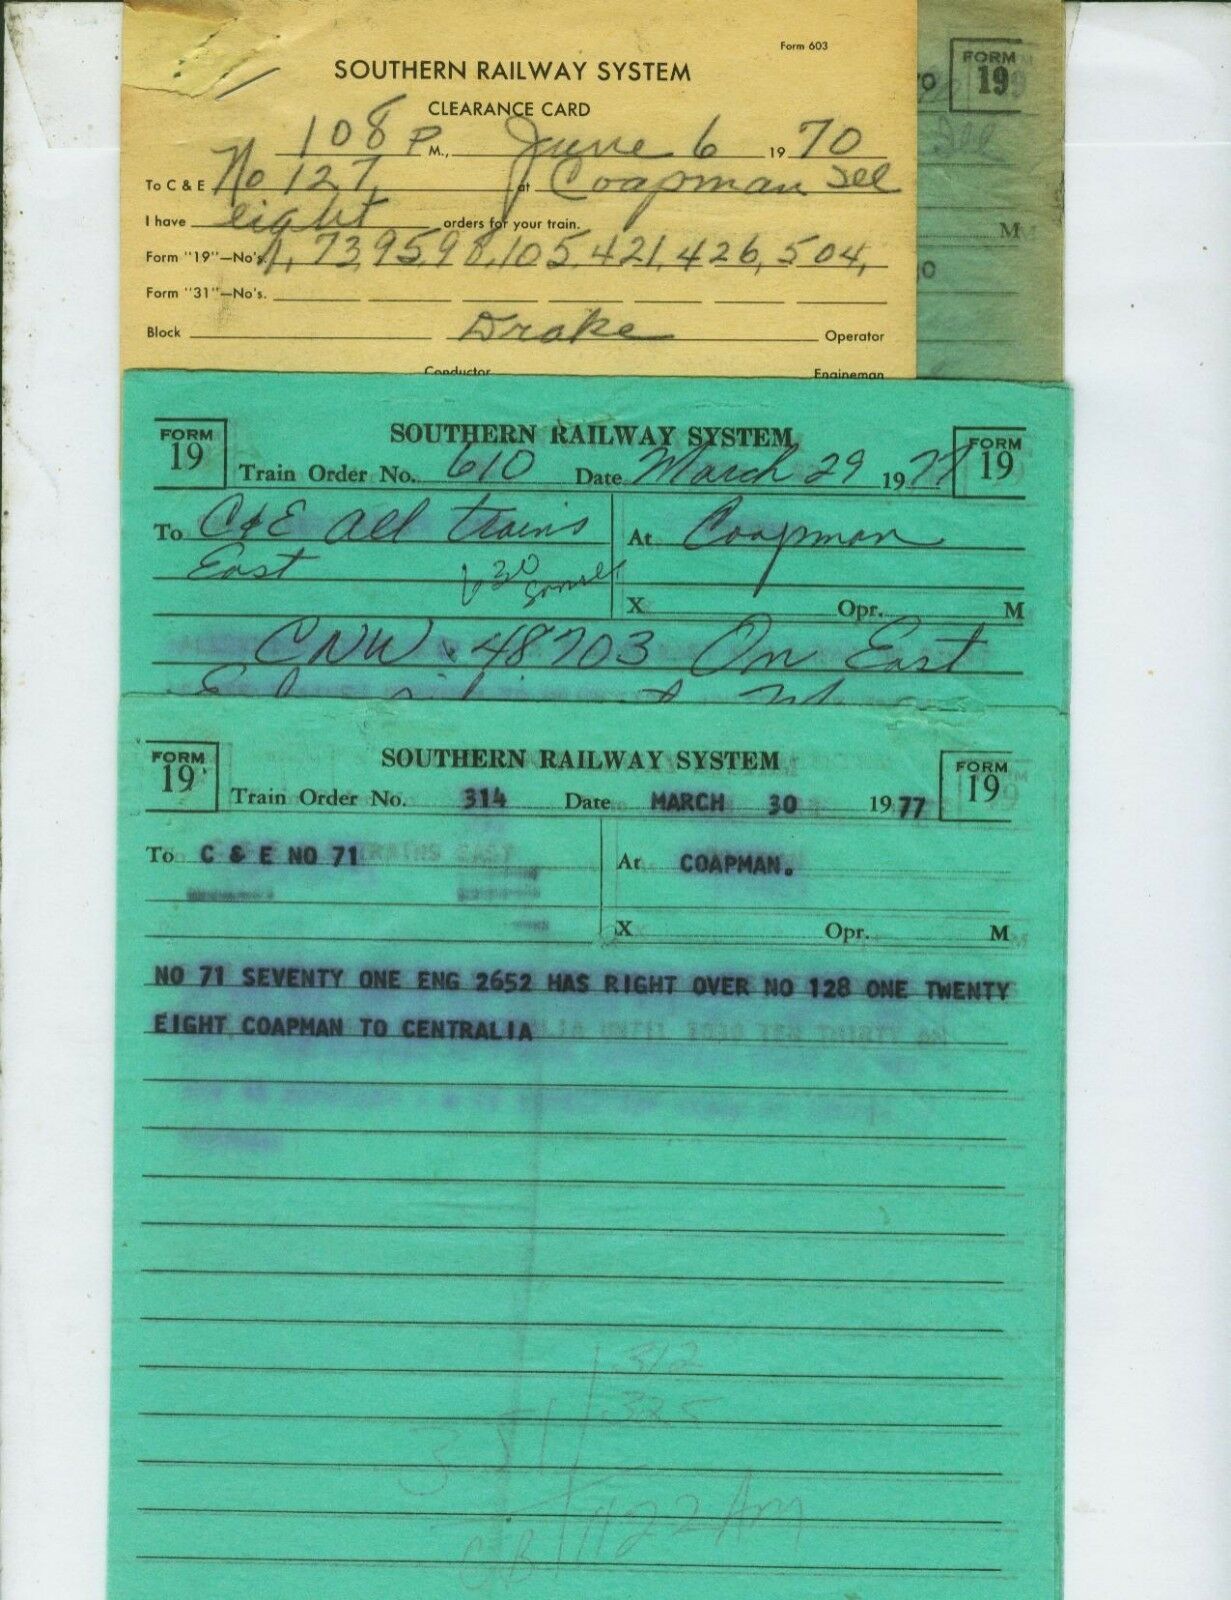 Form 603
SOUTHERN RAILWAY SYSTEM
CLEARANCE CARD
108 P M., June 6 19 70
To C & E No 127, at Coapman Ill
I have eight orders for your train.
Form "19"—No's. 1, 73, 95, 98, 105, 421, 426, 504,
Form "31"—No's.
Block Drake Operator
Conductor Engineman
FORM 19
Ill
M
FORM 19 SOUTHERN RAILWAY SYSTEM FORM 19
Train Order No. 610 Date March 29 1977
To C&E All trains At Coapman
East 630
X Opr. M
CNW 48703 On East
FORM 19 SOUTHERN RAILWAY SYSTEM FORM 19
Train Order No. 314 Date MARCH 30 1977
To C & E NO 71 At COAPMAN.
X Opr. M
NO 71 SEVENTY ONE ENG 2652 HAS RIGHT OVER NO 128 ONE TWENTY
EIGHT COAPMAN TO CENTRALIA
312
325
351
CB 1122 AM